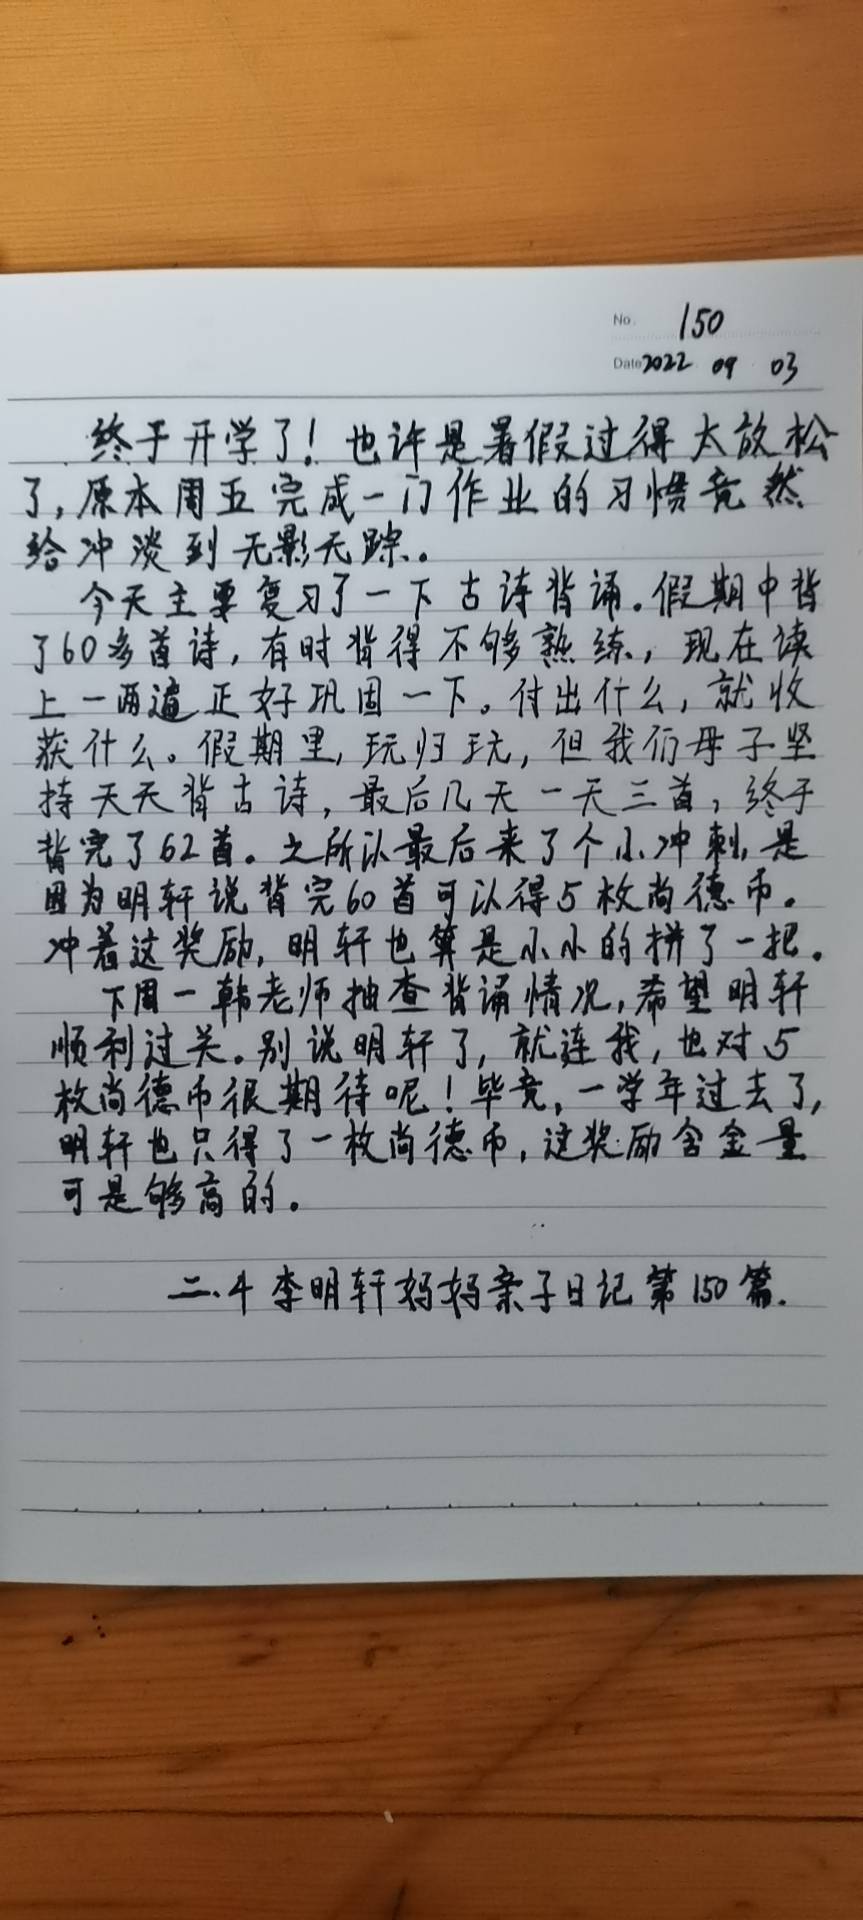 No. 150
Date 2022 09 03
终于开学了！也许是暑假过得太放松
了，原本周五完成一门作业的习惯竟然
给冲淡到无影无踪。
今天主要复习了一下古诗背诵。假期中背
了60多首诗，有时背得不够熟练，现在读
上一两遍正好巩固一下。付出什么，就收
获什么。假期里，玩归玩，但我们母子坚
持天天背古诗，最后几天一天三首，终于
背完了62首。之所以最后来了个小冲刺，是
因为明轩说背完60首可以得5枚尚德币。
冲着这奖励，明轩也算是小小的拼了一把。
下周一韩老师抽查背诵情况，希望明轩
顺利过关。别说明轩了，就连我，也对5
枚尚德币很期待呢！毕竟，一学年过去了，
明轩也只得了一枚尚德币，这奖励含金量
可是够高的。
二.4李明轩妈妈亲子日记第150篇.